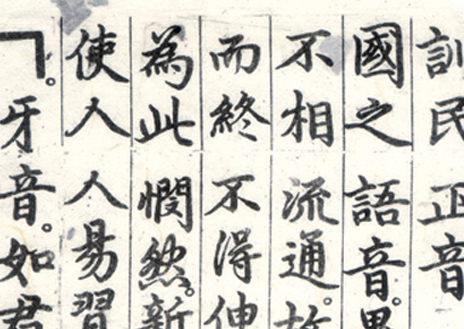 訓民正音
國之語音。異
不相流通。故
而終不得伸
為此憫然。新
使人人易習
ㄱ。牙音。如君